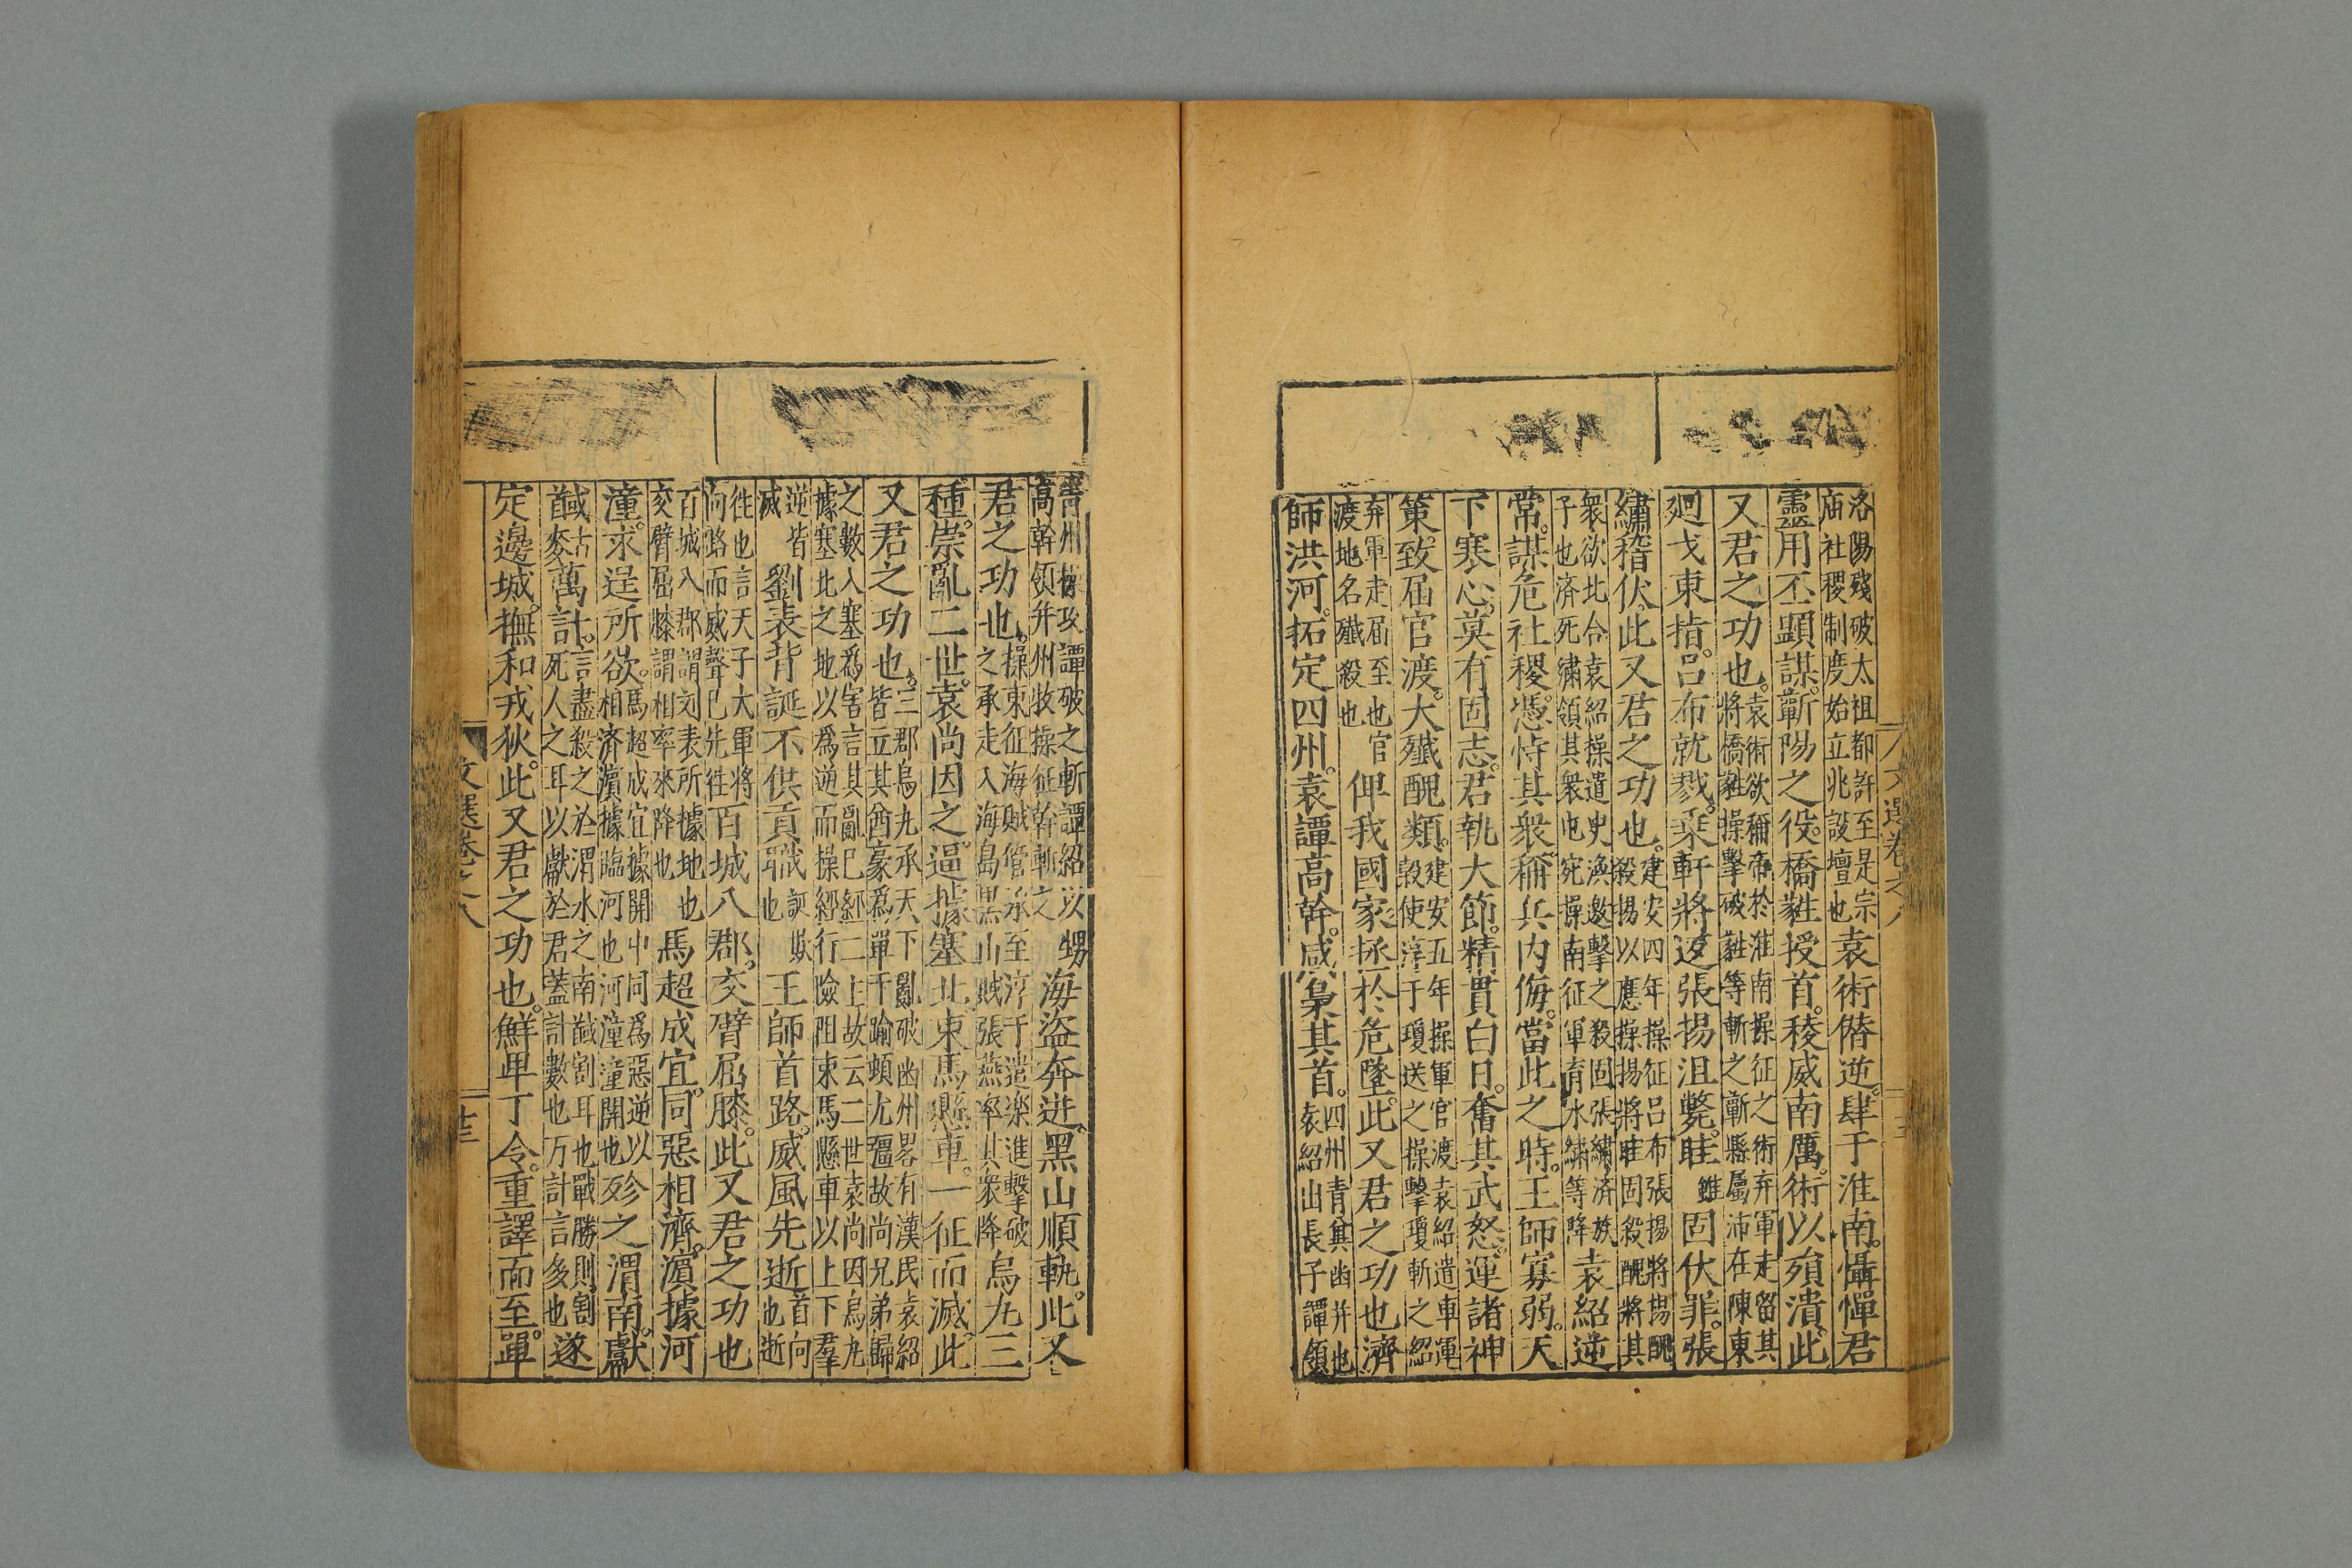 洛陽殘破太祖都許至是宗
庙社稷制度始立兆設壇也
袁術僭逆。肆于淮南。懾憚君
靈用丕顯謀。蘄陽之役。橋蕤授首。稜威南厲。術以殞潰。此
又君之功也。
袁術欲稱帝於淮南操征之術弃軍走留其
將橋蕤操擊破蕤等斬之蘄縣屬沛在陳東
廻戈東指。呂布就戮。乘軒將返張揚沮斃。眭雖固伏罪。張
繡稽伏。此又君之功也。
建安四年操征呂布張揚將揚醜
殺揚以應操揚將眭固殺醜將其
衆欲北合袁紹操遣史渙邀擊之殺固張繡済族
子也済死繡領其衆屯宛操南征軍育水繡等降
袁紹逆
常。謀危社稷。憑恃其衆稱兵内侮。當此之時。王師寡弱。天
下寒心。莫有固志。君執大節。精貫白日。奮其武怒。運諸神
策。致屆官渡。大殲醜類。
建安五年操軍官渡袁紹遣車運
穀使淳于瓊送之操擊瓊斬之紹
弃軍走屆至也官
渡地名殲殺也
俾我國家拯於危墜。此又君之功也濟
師洪河。拓定四州。袁譚高幹。咸梟其首。
四州青兾幽并也
袁紹出長子譚領
文選卷之八
青州操攻譚破之斬譚紹以甥
高幹領并州牧操征幹斬之
海盜奔迸。黑山順軌。此又
君之功也。
操東征海贼管承至淳于遣楽進擊破
之承走入海島黑山賊張燕率其衆降
烏丸三
種。崇亂二世。袁尚因之。逼據塞北。束馬懸車。一征而滅。此
又君之功也。
三郡烏丸承天下亂破幽州畧有漢民袁紹
皆立其酋豪爲單于蹋頓尤彊故尚兄弟歸
之數入塞爲害言其亂已經二上故云二世袁尚因烏丸
據塞北之地以爲逆而操經行險阻束馬懸車以上下羣
逆皆
滅
劉表背誕不供貢職
王師首路。威風先逝
首向
也逝
徃也言天子大軍將
向路而威聲已先徃
百城八郡。交臂屈膝。此又君之功也
百城八郡謂刘表所據地也
交臂屈膝謂相率來降也
馬超成宜。同惡相濟。濵據河
潼。求逞所欲。
馬超成宜據開中同爲惡逆以
相済濵據臨河也河潼潼開也
殄之渭南。獻
馘古麥萬計。
言盡殺之於渭水之南馘割耳也戰勝則割
死人之耳以獻於君葢計數也万計言多也
遂
定邊城。撫和戎狄。此又君之功也。鮮卑丁令。重譯而至。單
文選卷之八
廿三